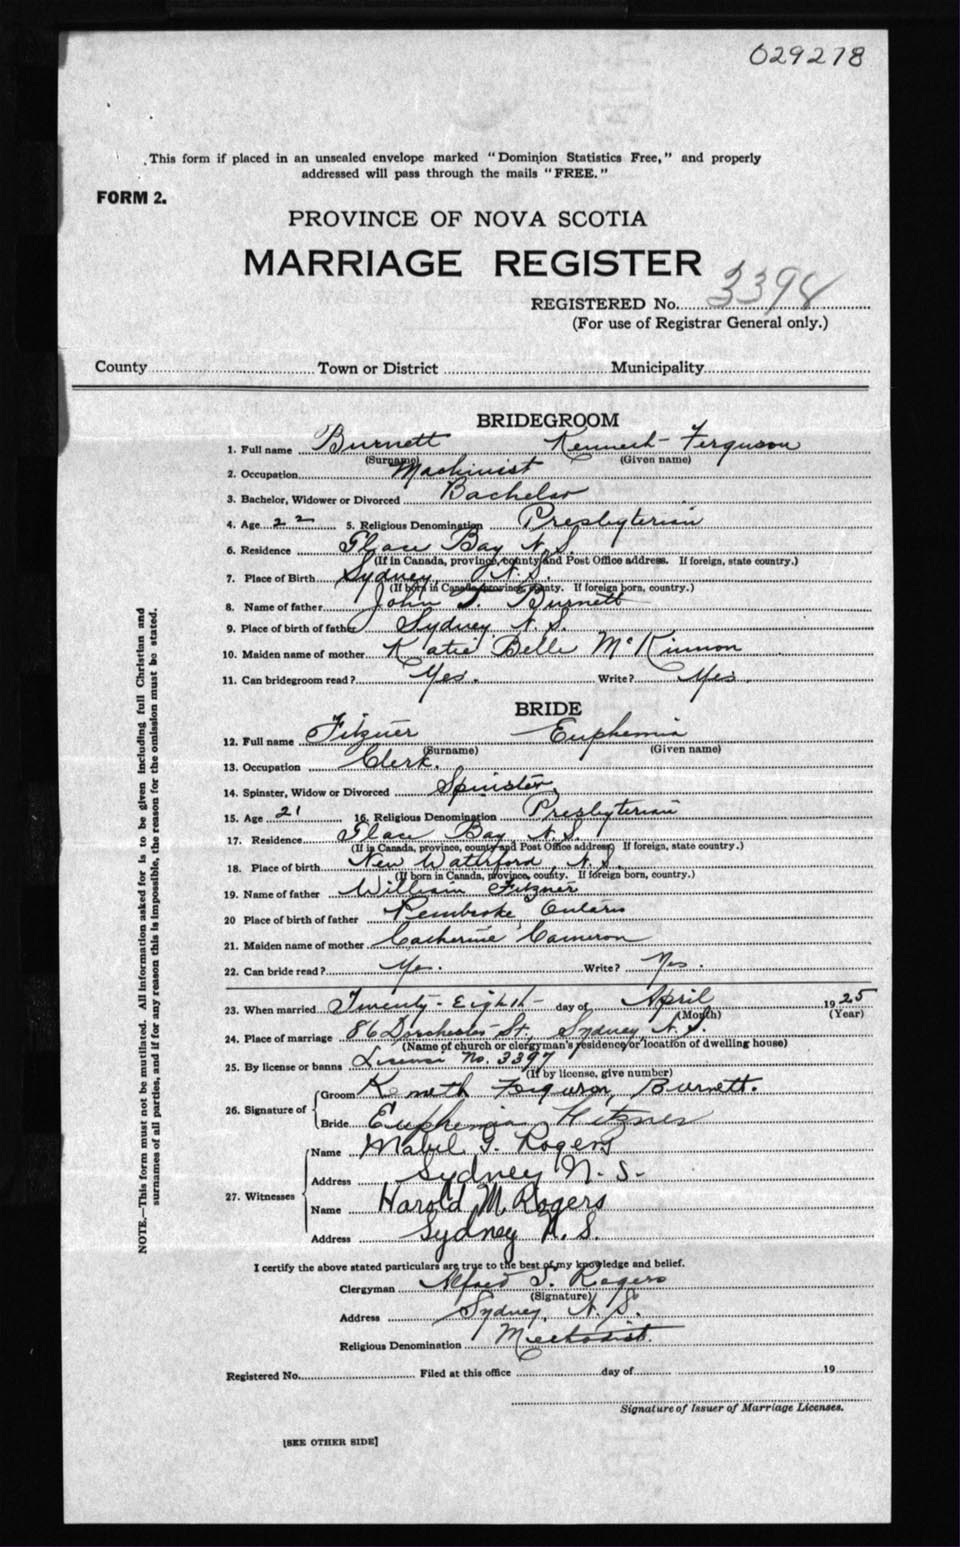 029278
This form if placed in an unsealed envelope marked "Dominion Statistics Free," and properly
addressed will pass through the mails "FREE."
FORM 2.
PROVINCE OF NOVA SCOTIA
MARRIAGE REGISTER
REGISTERED No. 3398
(For use of Registrar General only.)
County Town or District Municipality
BRIDEGROOM
1. Full name Burnett Kenneth Ferguson
(Surname) (Given name)
2. Occupation Machinist
3. Bachelor, Widower or Divorced Bachelor
4. Age 22 5. Religious Denomination Presbyterian
6. Residence Glace Bay N.S.
(If in Canada, province, county and Post Office address. If foreign, state country.)
7. Place of Birth Sydney, N.S.
(If born in Canada, province, county. If foreign born, country.)
8. Name of father John T. Burnett
9. Place of birth of father Sydney, N.S.
10. Maiden name of mother Katie Belle McKinnon
11. Can bridegroom read? Yes. Write? Yes.
BRIDE
12. Full name Fitzner Euphemia
(Surname) (Given name)
13. Occupation Clerk.
14. Spinster, Widow or Divorced Spinster
15. Age 21 16. Religious Denomination Presbyterian
17. Residence Glace Bay N.S.
(If in Canada, province, county and Post Office address. If foreign, state country.)
18. Place of birth New Waterford, N.S.
(If born in Canada, province, county. If foreign born, country.)
19. Name of father William Fitzner
20 Place of birth of father Pembroke, Ontario
21. Maiden name of mother Catherine Cameron
22. Can bride read? Yes. Write? Yes.
23. When married Twenty-Eighth day of April 1925
(Month) (Year)
24. Place of marriage 86 Dorchester St., Sydney, N.S.
(Name of church or clergyman's residence, or location of dwelling house)
25. By license or banns License No. 3397
(If by license, give number)
26. Signature of Groom Kenneth Ferguson Burnett.
Bride Euphemia Fitzner
27. Witnesses Name Mabel G. Rogers
Address Sydney N.S.
Name Harold M. Rogers
Address Sydney N.S.
I certify the above stated particulars are true to the best of my knowledge and belief.
Clergyman Alfred S. Rogers
(Signature)
Address Sydney, N.S.
Religious Denomination Methodist.
Registered No. Filed at this office day of 19
Signature of Issuer of Marriage Licenses.
[SEE OTHER SIDE]
NOTE.—This form must not be mutilated. All information asked for is to be given including full Christian and
surnames of all parties, and if for any reason this is impossible, the reason for the omission must be stated.